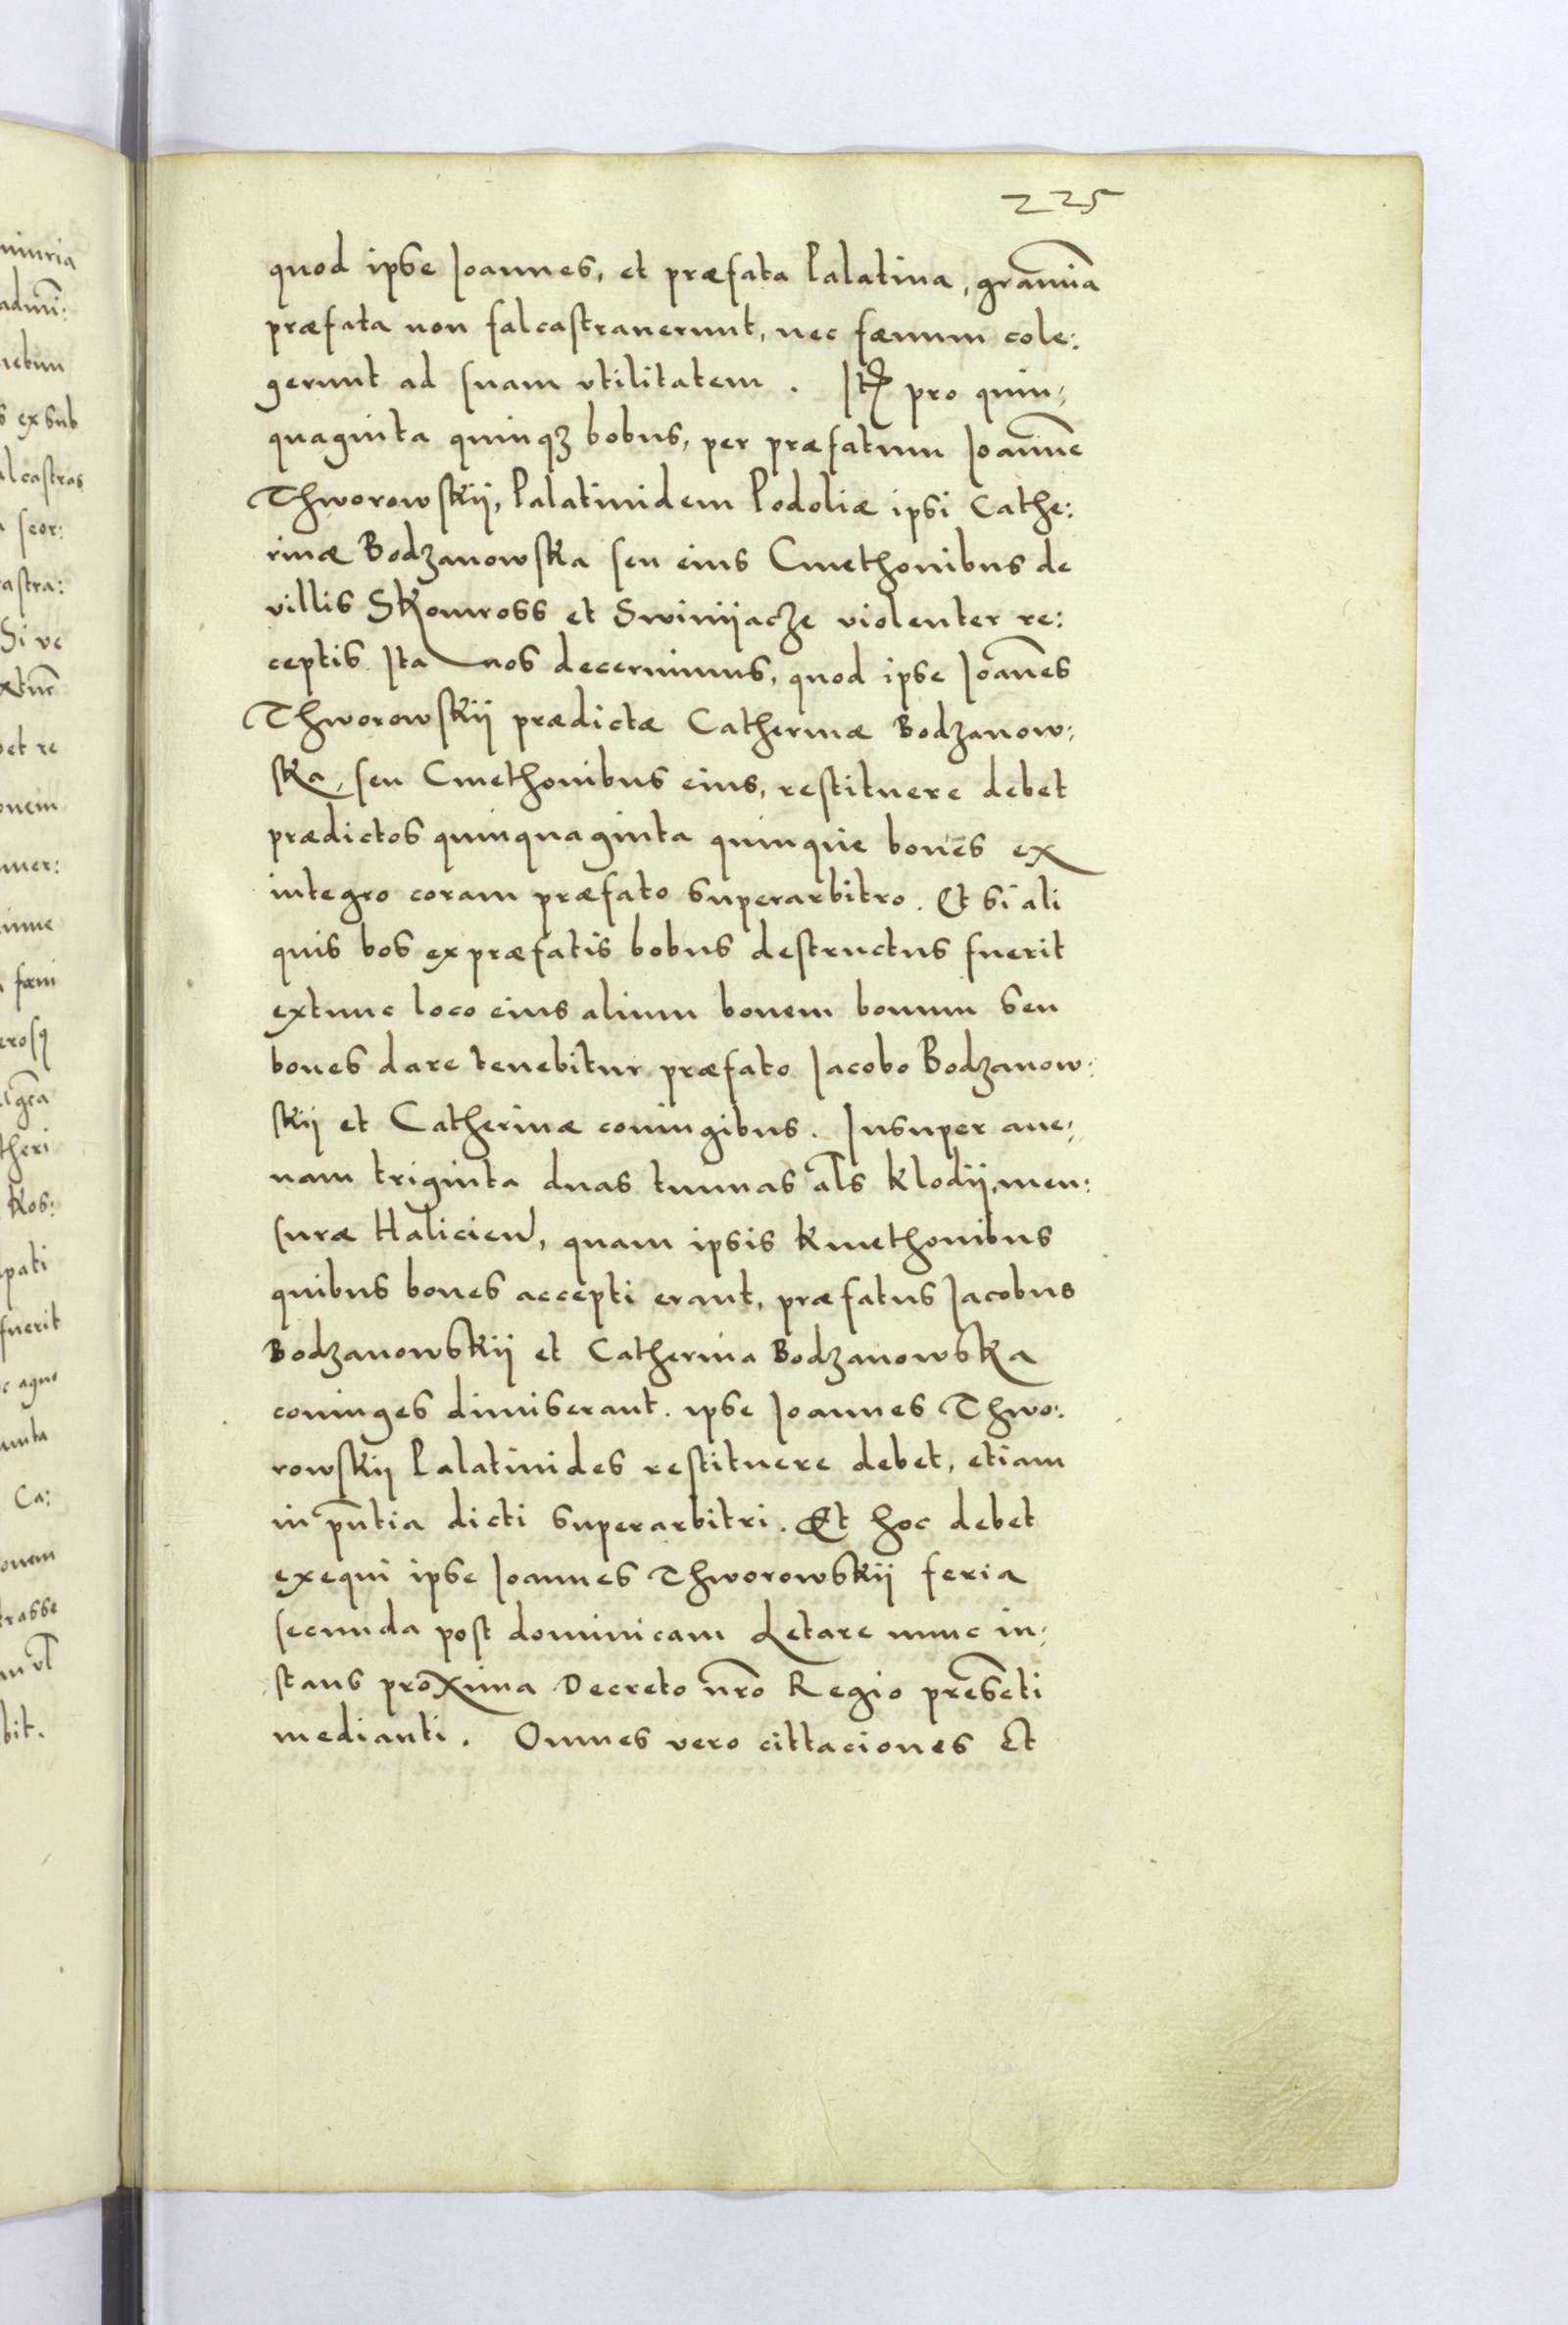 225
quod ipse Joannes, et præfata Palatina, gramīa
præfata non falcastrauerunt, nec fœnum cole:
gerunt ad suam vtilitatem. Itē pro quin:
quaginta quinqȝ bobus, per præfatum Joannē
Thworowskij, Palatinidem Podoliæ ipsi Cathe:
rinæ Bodzanowska seu eius Cmethonibus de
villis Skomross et Swinijacze violenter re:
ceptis. Ita nos decernimus, quod ipse Joānes
Thworowskij prædictæ Catherinæ Bodzanow:
ska, seu Cmethonibus eius, restituere debet
prædictos quinquaginta quinque boues ex
integro coram præfato superarbitro. Et si ali
quis bos ex præfatis bobus destructus fuerit
extunc loco eius alium bouem bonum seu
boues dare tenebitur præfato Jacobo Bodzanow:
skij et Catherinæ coniugibus. Insuper aue:
nam triginta duas tunnas al̄s Klodij, men:
suræ Halicien̄, quam ipsis Kmethonibus
quibus boues accepti erant, præfatus Jacobus
Bodzanowskij et Catherina Bodzanowska
coniuges dimiserant. ipse Joannes Thwo:
rowskij Palatinides restituere debet, etiam
in pn̄tia dicti superarbitri. Et hoc debet
exequi ipse Joannes Thworowskij feria
secunda post dominicam Letare nunc in:
stans proxima Decreto nr̄o Regio presēti
medianti. Omnes vero cittaciones Et